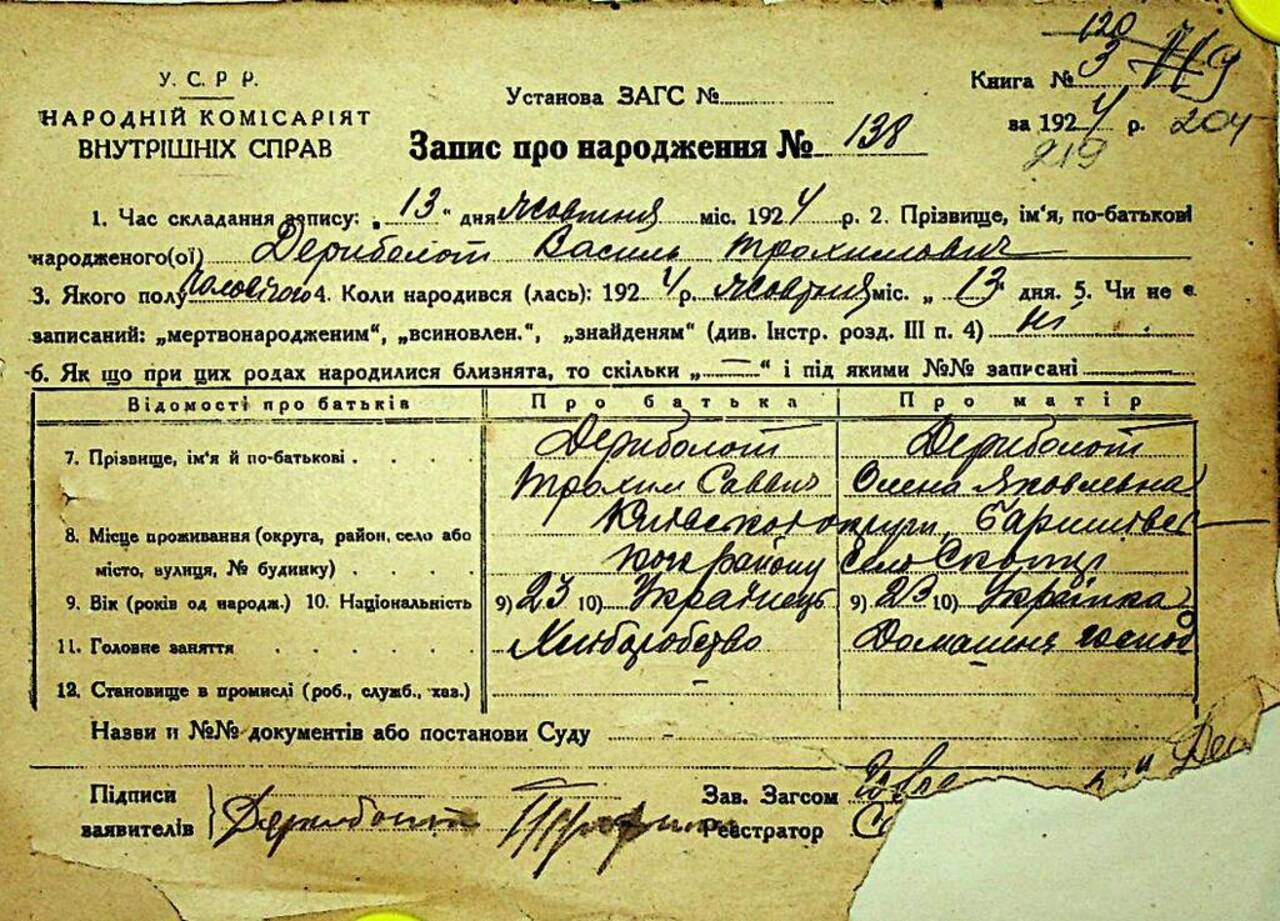 120
У. С. Р. Р.
НАРОДНІЙ КОМІСАРІЯТ
ВНУТРІШНІХ СПРАВ
Установа ЗАГС №
Книга № 3 119
за 1924 р. 204
219
Запис про народження № 138
1. Час складання запису: „13" дня жовтня міс. 1924 р. 2. Прізвище, ім'я, по-батькові
народженого(ої) Дериболот Василь Трохимович
3. Якого полу чоловічого 4. Коли народився (лась): 1924 р. жовтня міс. „13" дня. 5. Чи не є
записаний: „мертвонародженим", „всиновлен.", „знайденям" (див. Інстр. розд. III п. 4) ні
6. Як що при цих родах народилися близнята, то скільки „—" і під якими №№ записані
Відомості про батьків Про батька Про матір
7. Прізвище, ім'я й по-батькові Дериболот Дериболот
Трохим Саввич Олена Яковлевна
8. Місце проживання (округа, район, село або Київської округи, Баришевсь
місто, вулиця, № будинку) кого району село Скопці
9. Вік (років од народж.) 10. Національність 9) 23 10) Українець 9) 23 10) Українка
11. Головне заняття Хліборобство Домашня господ
12. Становище в промислі (роб., служб., хаз.) –
Назви и №№ документів або постанови Суду –
Підписи
заявителів Дериболот
Зав. Загсом
Реєстратор